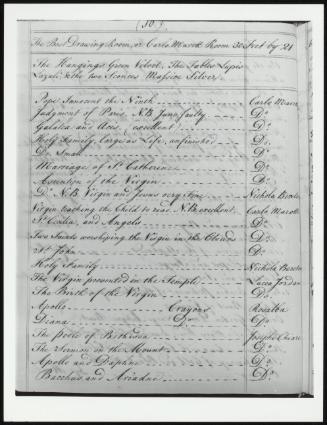 (10.)
The Best Drawing Room, or Carlo Maratt Room 30 feet by 21
The Hangings Green Velvet, The Tables Lapis
Lazuli, & the two Sconces Massive Silver.
Pope Innocent the Ninth Carlo Maratt
Judgment of Paris, NB. Juno faulty Do.
Galatea and Acis, (excellent) Do.
Holy Family, Large as Life, unfinished Do.
Do. Small Do.
Marriage of St. Catherine Do.
Assention of the Virgin Do.
Do. NB. Virgin and Jesus very fine Nichola Beretoni
Virgin teaching the Child to read, NB. excellent Carlo Maratt
St. Cecilia, and Angels Do.
Two Saints worshiping the Virgin in the Clouds Do.
St. John Do.
Holy Family Nichola Beretoni
The Virgin presented in the Temple Luca Jordan
The Birth of the Virgin Do.
Apollo Crayons Rosalba
Diana Do. Do.
The Poole of Bethesda Joseph Chiari
The Sermon on the Mount Do.
Apollo and Daphne Do.
Bacchus and Ariadne Do.